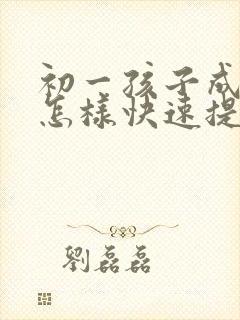 初一孩子成
怎樣快速提
劉磊磊